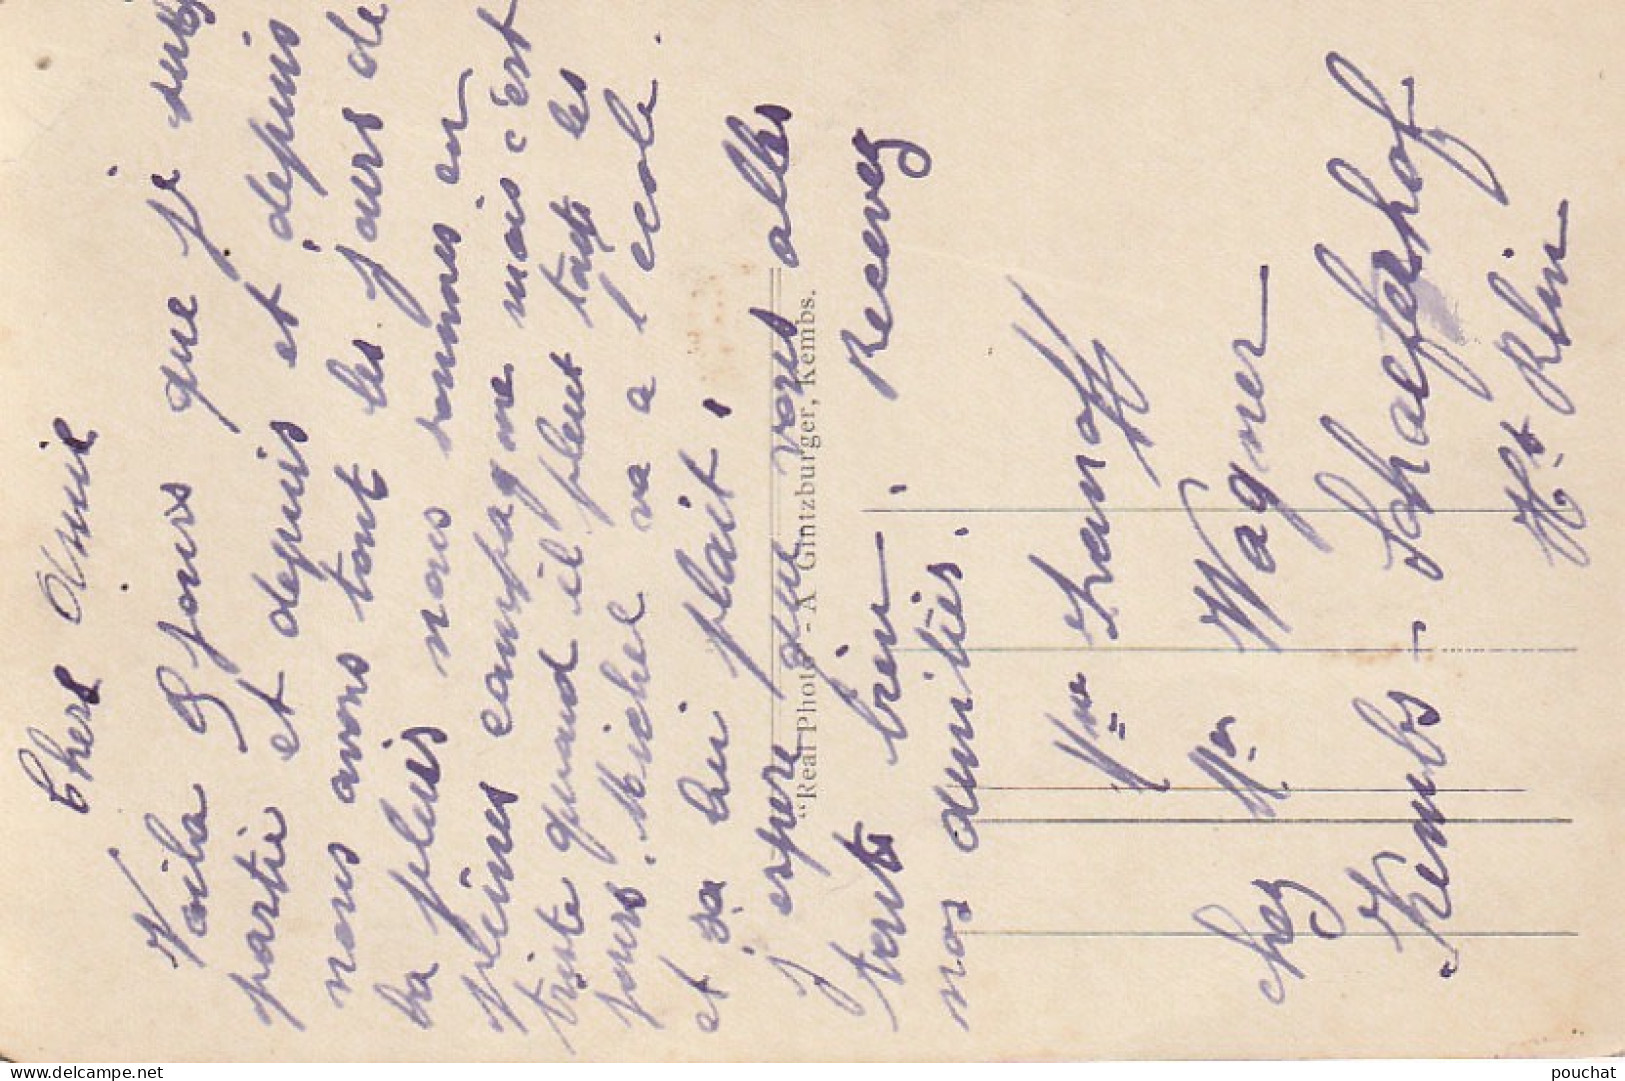 Chers Amie
Voila 9 jours que je suis
partie et depuis et depuis
nous avons tout les jours de
la pluis nous sommes en
pleines campagne mais c'est
triste quand il pleut tout les
jours. Michel va a l ecole.
et sa lui plait.
j espere que vous alles
trets bien. Recevez
nos amitiés.
"Real Photo" - A Gintzburger, Kembs.
Mme
chez Mr Wagner
Kembs - Schaeferhof
Ht Rhin
delcampe.net
pouchat